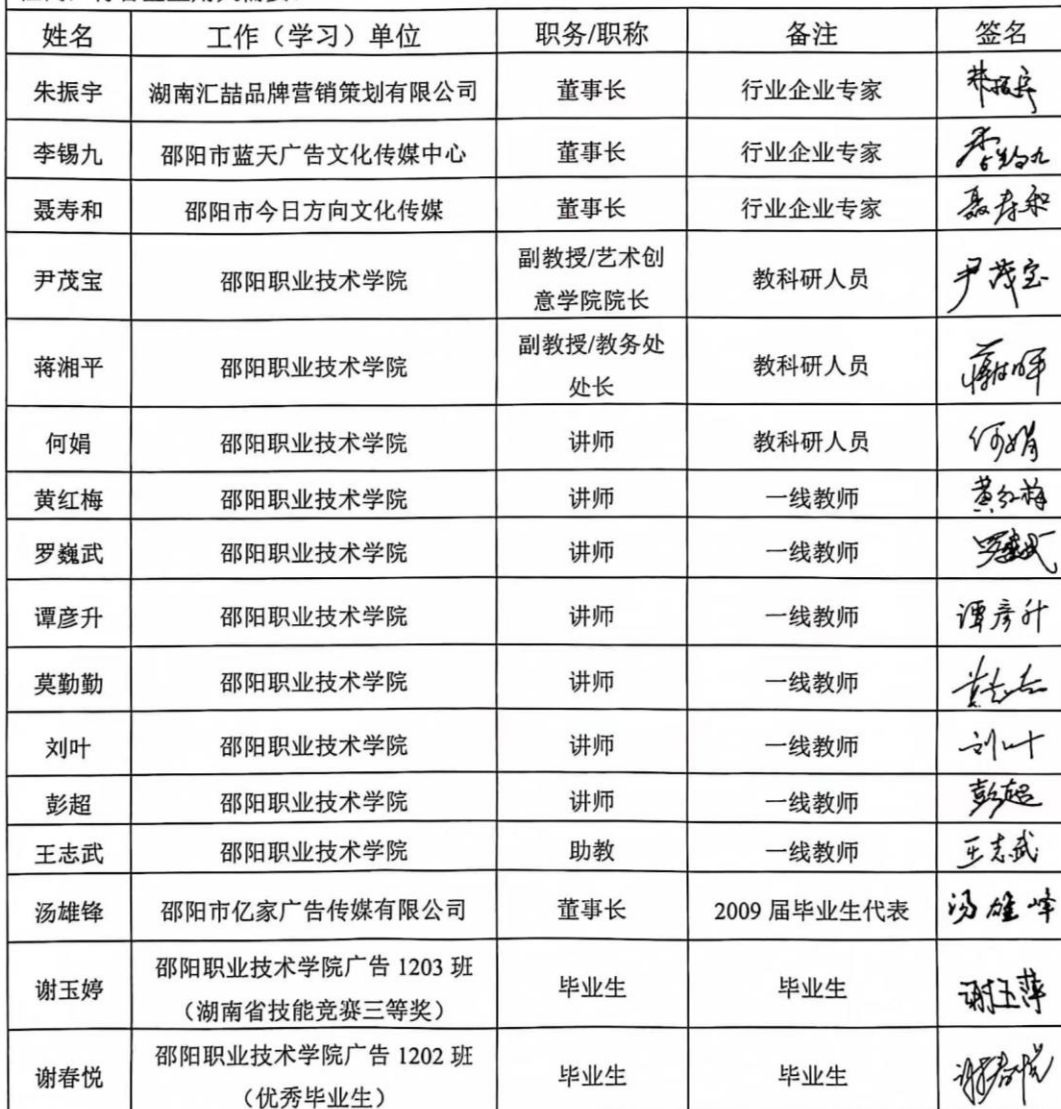 姓名 工作（学习）单位 职务/职称 备注 签名
朱振宇 湖南汇喆品牌营销策划有限公司 董事长 行业企业专家 朱振宇
李锡九 邵阳市蓝天广告文化传媒中心 董事长 行业企业专家 李锡九
聂寿和 邵阳市今日方向文化传媒 董事长 行业企业专家 聂寿和
尹茂宝 邵阳职业技术学院 副教授/艺术创
意学院院长 教科研人员 尹茂宝
蒋湘平 邵阳职业技术学院 副教授/教务处
处长 教科研人员
何娟 邵阳职业技术学院 讲师 教科研人员 何娟
黄红梅 邵阳职业技术学院 讲师 一线教师 黄红梅
罗巍武 邵阳职业技术学院 讲师 一线教师 罗巍武
谭彦升 邵阳职业技术学院 讲师 一线教师 谭彦升
莫勤勤 邵阳职业技术学院 讲师 一线教师
刘叶 邵阳职业技术学院 讲师 一线教师 刘叶
彭超 邵阳职业技术学院 讲师 一线教师 彭超
王志武 邵阳职业技术学院 助教 一线教师 王志武
汤雄锋 邵阳市亿家广告传媒有限公司 董事长 2009 届毕业生代表 汤雄峰
谢玉婷 邵阳职业技术学院广告 1203 班
（湖南省技能竞赛三等奖） 毕业生 毕业生 谢玉萍
谢春悦 邵阳职业技术学院广告 1202 班
（优秀毕业生） 毕业生 毕业生 谢春悦